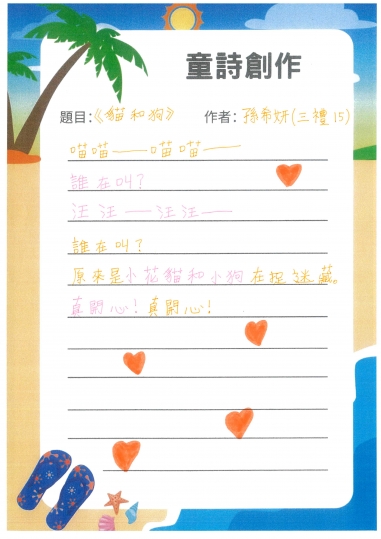 童詩創作
題目:《貓和狗》 作者:孫希妍(三禮15)
喵喵——喵喵——
誰在叫?
汪汪——汪汪——
誰在叫?
原來是小花貓和小狗在捉迷藏。
真開心!真開心!